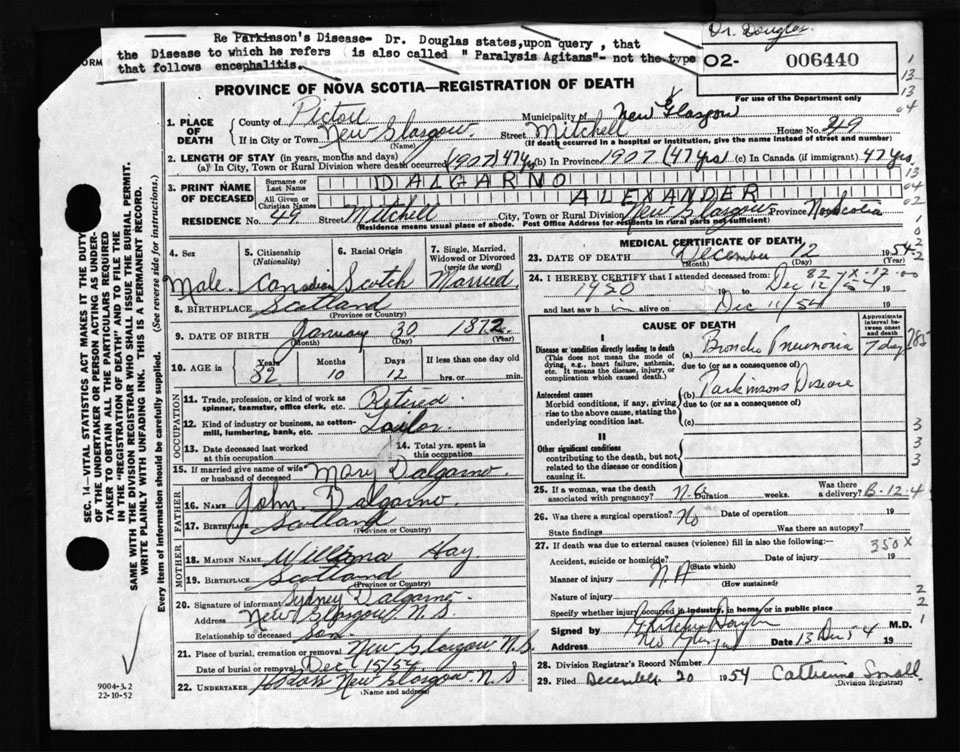 Re Parkinson's Disease- Dr. Douglas states,upon query , that
the Disease to which he refers is also called " Paralysis Agitans"- not the type
that follows encephalitis.
Dr. Douglas
ORM
O2- 006440
For use of the Department only
PROVINCE OF NOVA SCOTIA—REGISTRATION OF DEATH
1. PLACE OF DEATH
County of Pictou Municipality of New Glasgow
If in City or Town New Glasgow Street Mitchell House No. 49
(Name) (If death occurred in a hospital or Institution, give the name instead of street and number)
2. LENGTH OF STAY (in years, months and days)
(a) In City, Town or Rural Division where death occurred (1907) 47 yrs (b) In Province 1907 (47 yrs) (c) In Canada (if immigrant) 47 yrs.
3. PRINT NAME OF DECEASED
Surname or Last Name DALGARNO
All Given or Christian Names ALEXANDER
RESIDENCE No. 49 Street Mitchell City, Town or Rural Division New Glasgow Province Nova Scotia
(Residence means usual place of abode. Post Office Address for residents in rural parts not sufficient)
4. Sex
Male
5. Citizenship (Nationality)
Canadian
6. Racial Origin
Scotch
7. Single, Married, Widowed or Divorced (write the word)
Married
8. BIRTHPLACE Scotland
(Province or Country)
9. DATE OF BIRTH January 30 1872
(Month) (Day) (Year)
10. AGE in Years 82 Months 10 Days 12 If less than one day old
hrs. or min.
OCCUPATION
11. Trade, profession, or kind of work as spinner, teamster, office clerk, etc. Retired
12. Kind of industry or business, as cotton-mill, lumbering, bank, etc. Tailor
13. Date deceased last worked at this occupation
14. Total yrs. spent in this occupation
15. If married give name of wife or husband of deceased Mary Dalgarno
FATHER
16. Name John Dalgarno
17. Birthplace Scotland
(Province or Country)
MOTHER
18. MAIDEN NAME Hay
19. BIRTHPLACE Scotland
(Province or Country)
20. Signature of informant Sydney Dalgarno
Address New Glasgow N.S
Relationship to deceased Son
21. Place of burial, cremation or removal New Glasgow N.S.
Date of burial or removal Dec 15/54
22. UNDERTAKER New Glasgow N.S
(Name and address)
MEDICAL CERTIFICATE OF DEATH
23. DATE OF DEATH December 12 1954
(Month) (Day) (Year)
24. I HEREBY CERTIFY that I attended deceased from
1950 19 to Dec 12/54 19
and last saw h im alive on Dec 11/54 19
CAUSE OF DEATH
Approximate interval between onset and death
I
Disease or condition directly leading to death (a) Broncho Pneumonia 7 days
(This does not mean the mode of dying, e.g., heart failure, asthenia, etc. It means the disease, injury, or complication which caused death.)
due to (or as a consequence of)
Antecedent causes (b) Parkinsons Disease
Morbid conditions, if any, giving rise to the above cause, stating the underlying condition last.
due to (or as a consequence of)
(c)
II
Other significant conditions
contributing to the death, but not related to the disease or condition causing it.
25. If a woman, was the death associated with pregnancy? Duration weeks. Was there a delivery? B-12-4
26. Was there a surgical operation? No Date of operation 19
State findings Was there an autopsy?
27. If death was due to external causes (violence) fill in also the following:— 350X
Accident, suicide or homicide? Date of injury 19
(State which)
Manner of injury N.A
(How sustained)
Nature of injury
Specify whether injury occurred in industry, in home, or in public place
Signed by M.D.
Address New Glasgow Date 13 Dec 54 19
28. Division Registrar's Record Number
29. Filed December 20 1954 Catherine Small
(Division Registrar)
SEC. 14—VITAL STATISTICS ACT MAKES IT THE DUTY
OF THE UNDERTAKER OR PERSON ACTING AS UNDER-
TAKER TO OBTAIN ALL THE PARTICULARS REQUIRED
IN THE "REGISTRATION OF DEATH" AND TO FILE THE
SAME WITH THE DIVISION REGISTRAR WHO SHALL ISSUE THE BURIAL PERMIT.
WRITE PLAINLY WITH UNFADING INK. THIS IS A PERMANENT RECORD.
Every item of information should be carefully supplied. (See reverse side for instructions.)
9004-3.2
22-10-52